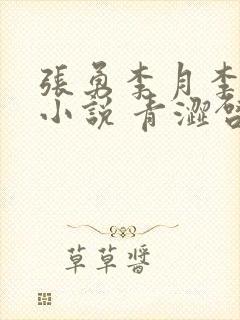 張勇李月李
小說 青澀
草草醬